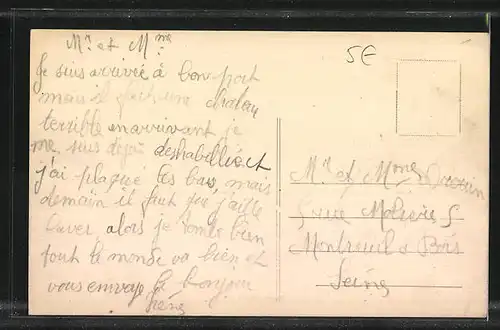 Mr et Mme
5E
Je suis arrivée à bon port
mais il fait une chaleur
terrible en arrivant je
me suis déjà déshabillé et
j'ai plaqué les bas, mais
demain il faut que j'aille
laver alors je tombe bien
tout le monde va bien et
vous envoye le bonjour
Mr et Mme
5 rue Molière 5
Montreuil s Bois
Seine